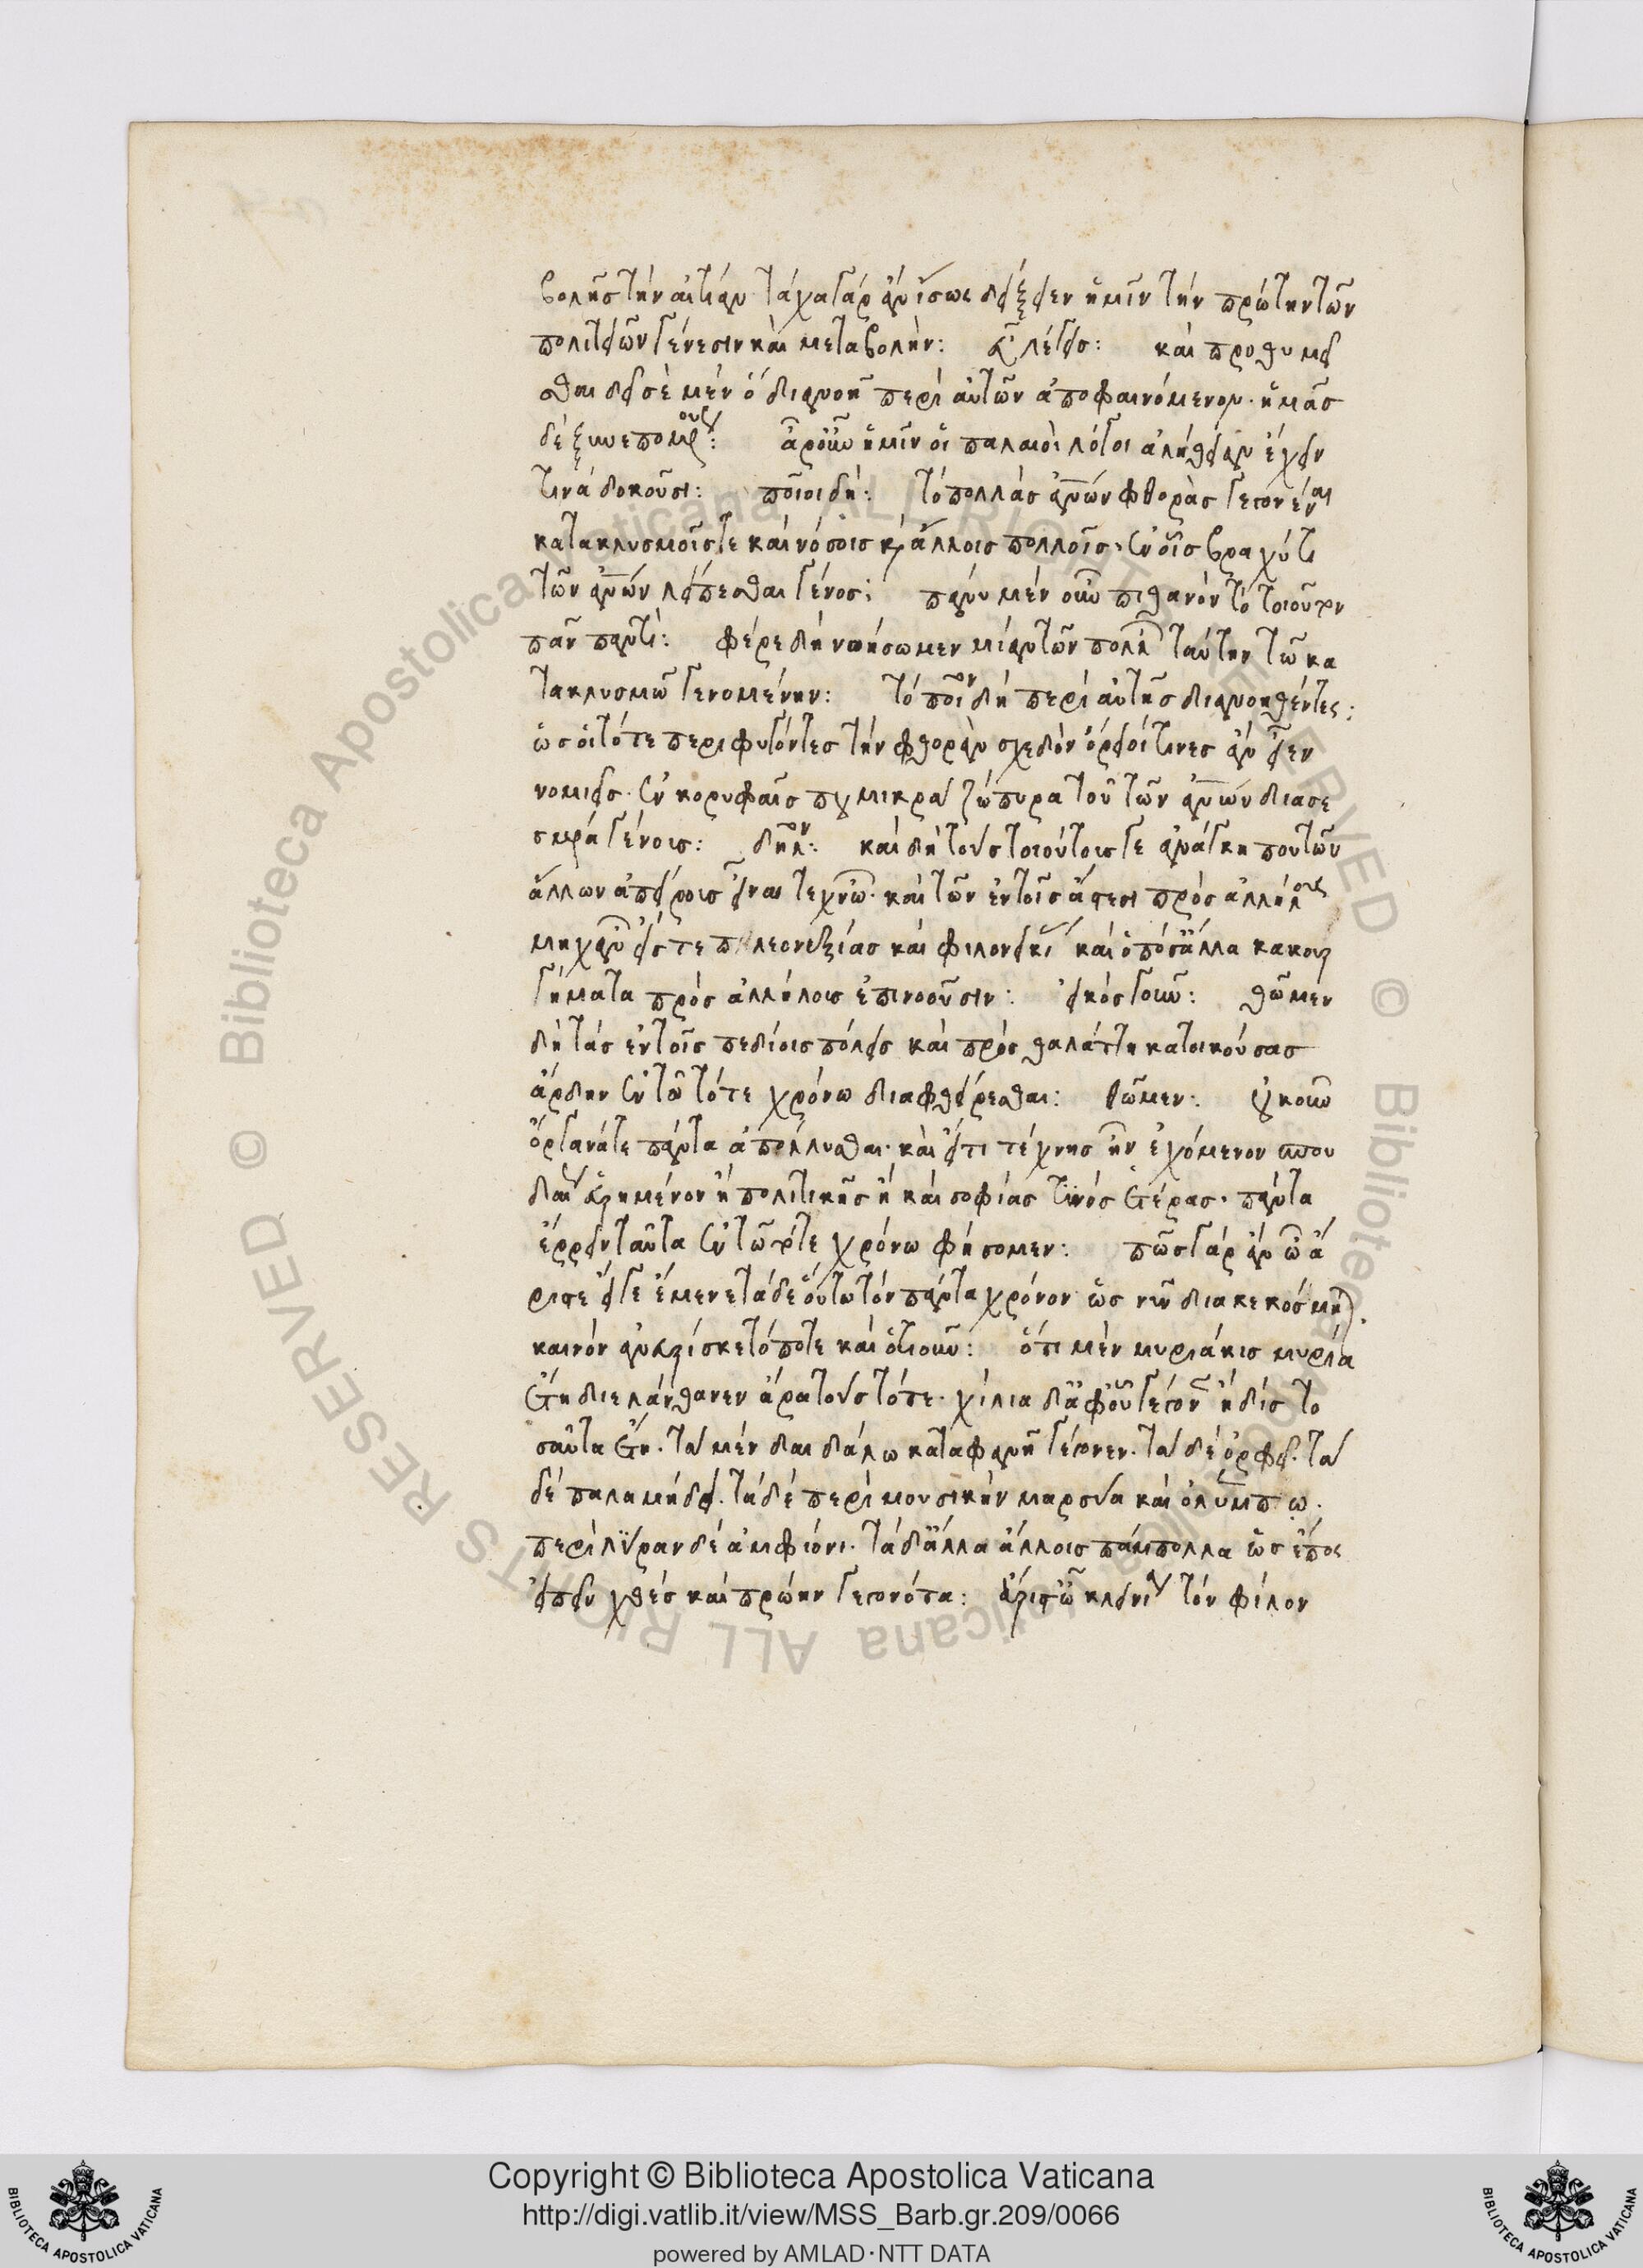 βολῆς τὴν αἰτίαν τάχα γὰρ ἂν ἴσως δείξειεν ἡμῖν τὴν πρώτην τῶν
πολιτειῶν γένεσιν καὶ μεταβολὴν: εὖ λέγεις: καὶ προθυμεῖ
σθαι δεῖ σὲ μὲν ὃ διανοῇ περὶ αὐτῶν ἀποφαινόμενον. ἡμᾶς
δὲ ξυνεπομένους: ἆρ οὖν ὑμῖν οἱ παλαιοὶ λόγοι ἀλήθειαν ἔχειν
τινὰ δοκοῦσι: ποῖοι δή: τὸ πολλὰς ἀνων φθορὰς γεγονέναι
κατακλυσμοῖς τε καὶ νόσοις κ ἄλλοις πολλοῖς. ἐν οἷς βραχύ τι
τῶν ἀνων λείπεσθαι γένος: πάνυ μὲν οὖν πιθανὸν τὸ τοιοῦτον
πᾶν παντί: φέρε δὴ νοήσωμεν μίαν τῶν πολλ ταύτην τῷ κα
τακλυσμῷ γενομένην: τὸ ποῖον δὴ περὶ αὐτῆς διανοηθέντες:
ὡς οἱ τότε περιφυγόντες τὴν φθορὰν σχεδὸν ὄρειοί τινες ἂν εἶεν
νομεῖς. ἐν κορυφαῖς που μικρὰ ζώπυρα τοῦ τῶν ἀνων διασε
σωμένα γένους: δῆλον: καὶ δὴ τοὺς τοιούτους γε ἀνάγκη που τῶν
ἄλλων ἀπείρους εἶναι τεχνῶν. καὶ τῶν ἐν τοῖς ἄστεσι πρὸς ἀλλήλους
μηχανῶν εἴς τε πλεονεξίας καὶ φιλονεικί καὶ ὁπόσ ἄλλα κακουρ
γήματα πρὸς ἀλλήλους ἐπινοοῦσιν: εἰκὸς γοῦν: θῶμεν
δὴ τὰς ἐν τοῖς πεδίοις πόλεις καὶ πρὸς θαλάττῃ κατοικούσας
ἄρδην ἐν τῷ τότε χρόνῳ διαφθείρεσθαι: θῶμεν: οὐκοῦν
ὄργανά τε πάντα ἀπόλλυσθαι. καὶ εἴ τι τέχνης ἦν ἐχόμενον σπου
δαίως εὑρημένον ἢ πολιτικῆς ἢ καὶ σοφίας τινὸς ἑτέρας. πάντα
ἔρρειν ταῦτα ἐν τῷ τότε χρόνῳ φήσομεν: πῶς γὰρ ἂν ὦ ἄ
ριστε εἴ γε ἔμενε τάδε οὕτω τὸν πάντα χρόνον ὡς νῦν διακεκόσμηται.
καινὸν ἀνευρίσκετό ποτε καὶ ὁτιοῦν: ὅτι μὲν μυριάκις μυρία
ἔτη διελάνθανεν ἄρα τοὺς τότε. χίλια δ ἀφ οὗ γέγονεν ἢ δὶς το
σαῦτα ἔτη. τὰ μὲν δαιδάλῳ καταφανῆ γέγονεν. τὰ δὲ ὀρφεῖ. τὰ
δὲ παλαμήδει. τὰ δὲ περὶ μουσικὴν μαρσύα καὶ ὀλύμπῳ.
περὶ λύραν δὲ ἀμφίονι. τὰ δ ἄλλα ἄλλοις πάμπολλα ὡς ἔπος
εἰπεῖν χθὲς καὶ πρώην γεγονότα: ἄριστ ὦ κλεινία τὸν φίλον
© Biblioteca Apostolica Vaticana ALL RIGHTS RESERVED
© Biblioteca Apostolica Vaticana ALL RIGHTS RESERVED
Copyright © Biblioteca Apostolica Vaticana
http://digi.vatlib.it/view/MSS_Barb.gr.209/0066
powered by AMLAD·NTT DATA
BIBLIOTECA APOSTOLICA VATICANA
BIBLIOTECA APOSTOLICA VATICANA